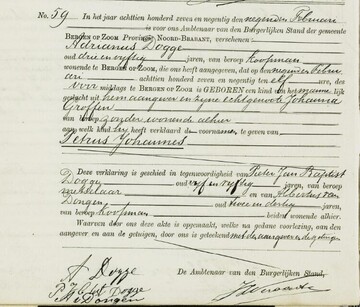 No. 59
In het jaar achttien honderd zeven en negentig den negenden Februari
is voor ons Ambtenaar van den Burgerlijken Stand der gemeente
BERGEN OP ZOOM Provincie NOORD-BRABANT, verschenen
Adrianus Dogge
oud drie en vyftig jaren, van beroep koopman
wonende te BERGEN OP ZOOM, die ons heeft aangegeven, dat op den negenden Febru
ari achttienhonderd zeven en negentig ten elf ure, des
voor middags te BERGEN OP ZOOM is GEBOREN een kind van het mannelijk
geslacht uit hem aangever en zyne echtgenoote Johanna
Groffen
van beroep zonder wonende alhier
aan welk kind hy heeft verklaard de voornamen te geven van
Petrus Johannes
Deze verklaring is geschied in tegenwoordigheid van Pieter Jan Baptist
Dogge oud vyf en vyftig jaren, van beroep
metselaar en van
Dongen oud twee en dertig jaren,
van beroep koopman beiden wonende alhier.
Waarvan door ons deze akte is opgemaakt, welke na gedane voorlezing, aan den
aangever en aan de getuigen, door ons is geteekend met de aangever en de getuigen
De Ambtenaar van den Burgerlijken Stand,
A Dogge
Dogge
v Dongen